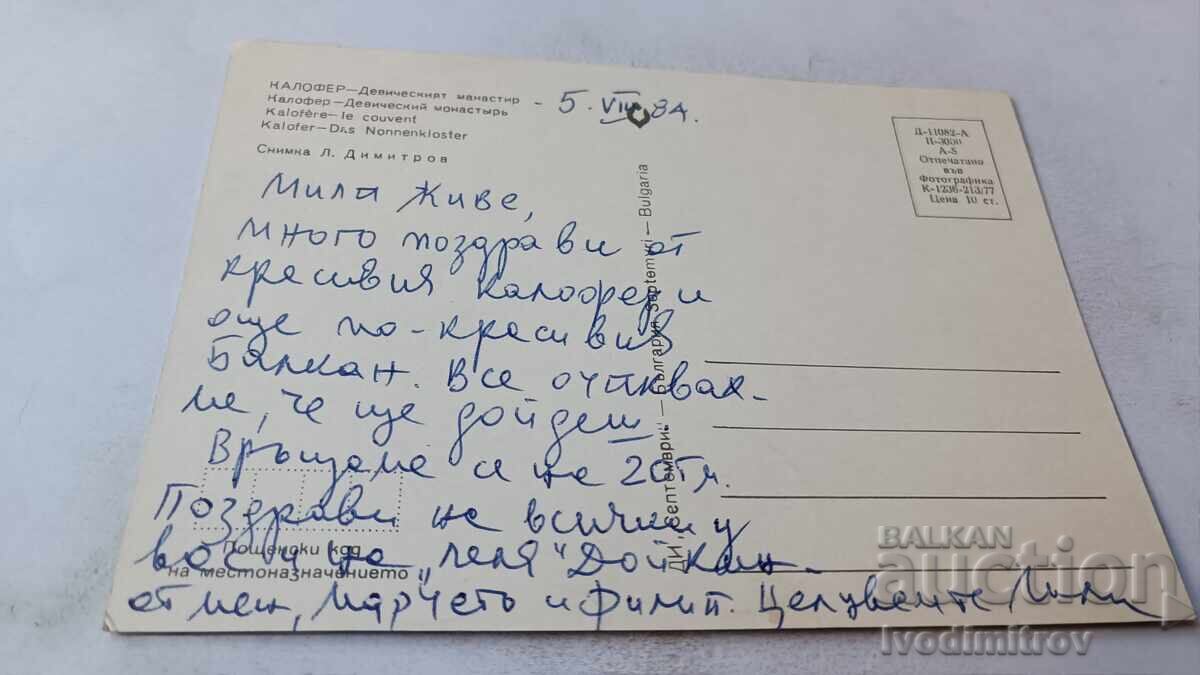 КАЛОФЕР—Девическият манастир
Калофер—Девический монастырь
Kalofère—le couvent
Kalofer—Das Nonnenkloster
Снимка Л. Димитров
- 5. VIII 84.
Д-11082-А
П-3050
А-5
Отпечатано
във
Фотографика
К-1236-213/77
Цена 10 ст.
Мила Живе,
много поздрави от
красивия Калофер и
още по-красивия
Балкан. Все очаквах-
ме, че ще дойдеш.
Връщаме се на 20 т.м.
Поздрави на всички у
вас и на „леля" Дойкан-
от мен, Марчето и Филип. Целувам те
Пощенски код
на местоназначението
ДИ „Септември" — България Septemvri — Bulgaria
BALKAN
auction
Ivodimitrov